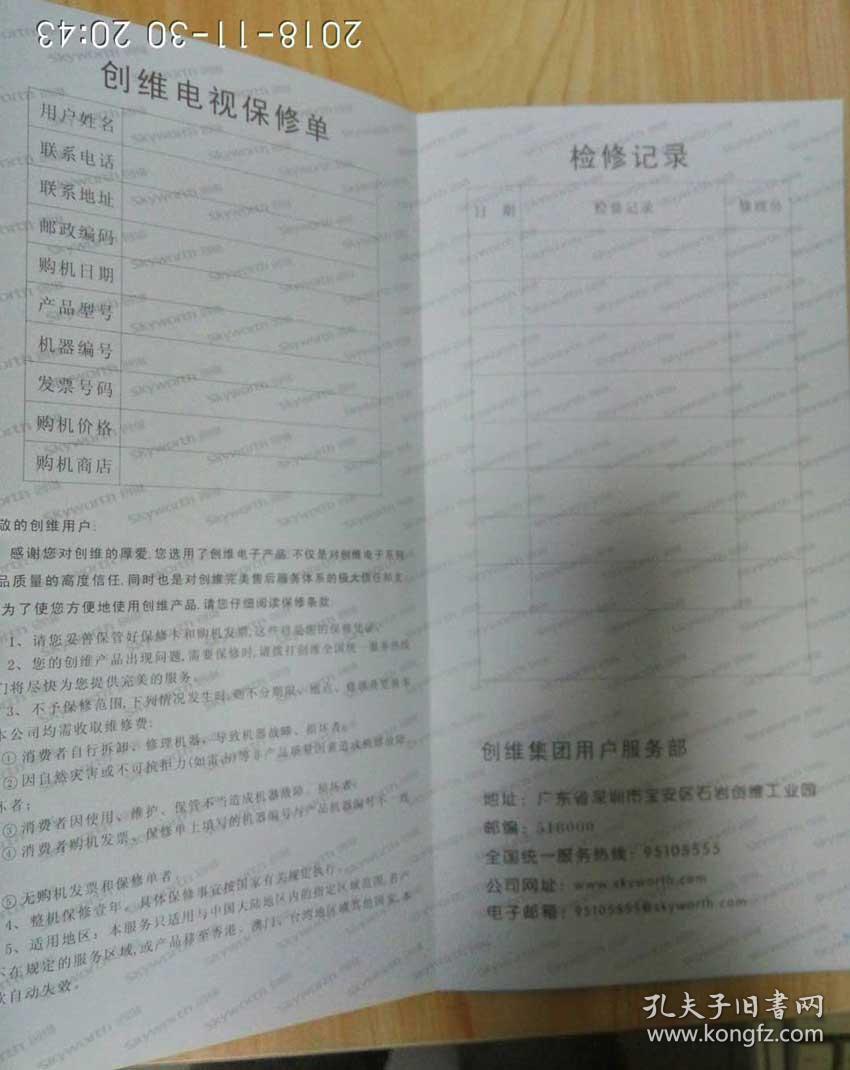 2018-11-30 20:43
创维电视保修单
用户姓名
联系电话
联系地址
邮政编码
购机日期
产品型号
机器编号
发票号码
购机价格
购机商店
敬的创维用户:
感谢您对创维的厚爱,您选用了创维电子产品,不仅是对创维电子系列
品质量的高度信任,同时也是对创维完美售后服务体系的极大信任和支
为了使您方便地使用创维产品,请您仔细阅读保修条款
1、请您妥善保管好保修卡和购机发票,这些将是您的保修凭证。
2、您的创维产品出现问题,需要保修时,请拨打创维全国统一服务热线
们将尽快为您提供完美的服务。
3、不予保修范围,下列情况发生时,则不分期限、地点、
本公司均需收取维修费:
①消费者自行拆卸、修理机器,导致机器故障、损坏者;
②因自然灾害或不可抗拒力(如雷击)等非产品质量因素造成机器故障
坏者;
③消费者因使用、维护、保管不当造成机器故障、损坏者;
④消费者购机发票、保修单上填写的机器编号与产品机器编号不一致
⑤无购机发票和保修单者。
4、整机保修壹年。具体保修事宜按国家有关规定执行。
5、适用地区:本服务只适用与中国大陆地区内的指定区域范围,若产
不在规定的服务区域,或产品移至香港、澳门、台湾地区或其他国家,本
款自动失效。
检修记录
日 期 检修记录 修理员
创维集团用户服务部
地址:广东省深圳市宝安区石岩创维工业园
邮编:518000
全国统一服务热线:95105555
公司网址:www.skyworth.com
电子邮箱:95105555@skyworth.com
孔夫子旧书网
www.kongfz.com